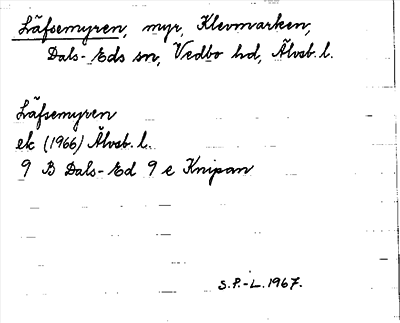 Läfsemyren, myr, Klevmarken,
Dals-Eds sn, Vedbo hd, Älvsb. l.
Läfsemyren
ek (1966) Älvsb. l.
9 B Dals-Ed 9 e Knipan
S.P.-L. 1967.